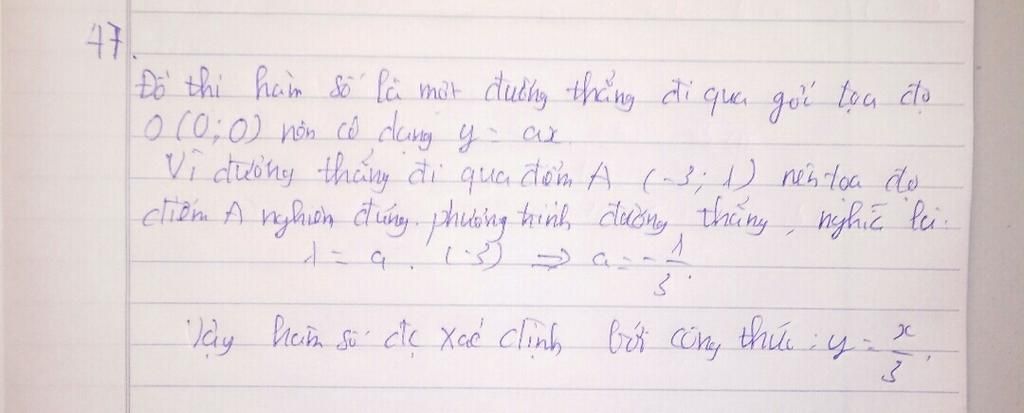 47.
Đồ thi hàm số là một đường thẳng đi qua gốc tọa độ
O (0; 0) nên có dạng y = ax.
Vì đường thẳng đi qua điểm A (-3; 1) nên tọa độ
điểm A nghiệm đúng phương trình đường thẳng, nghĩa là:
1 = a . (-3) => a = -1/3.
Vậy hàm số đc xác định bởi công thức: y = x/3.